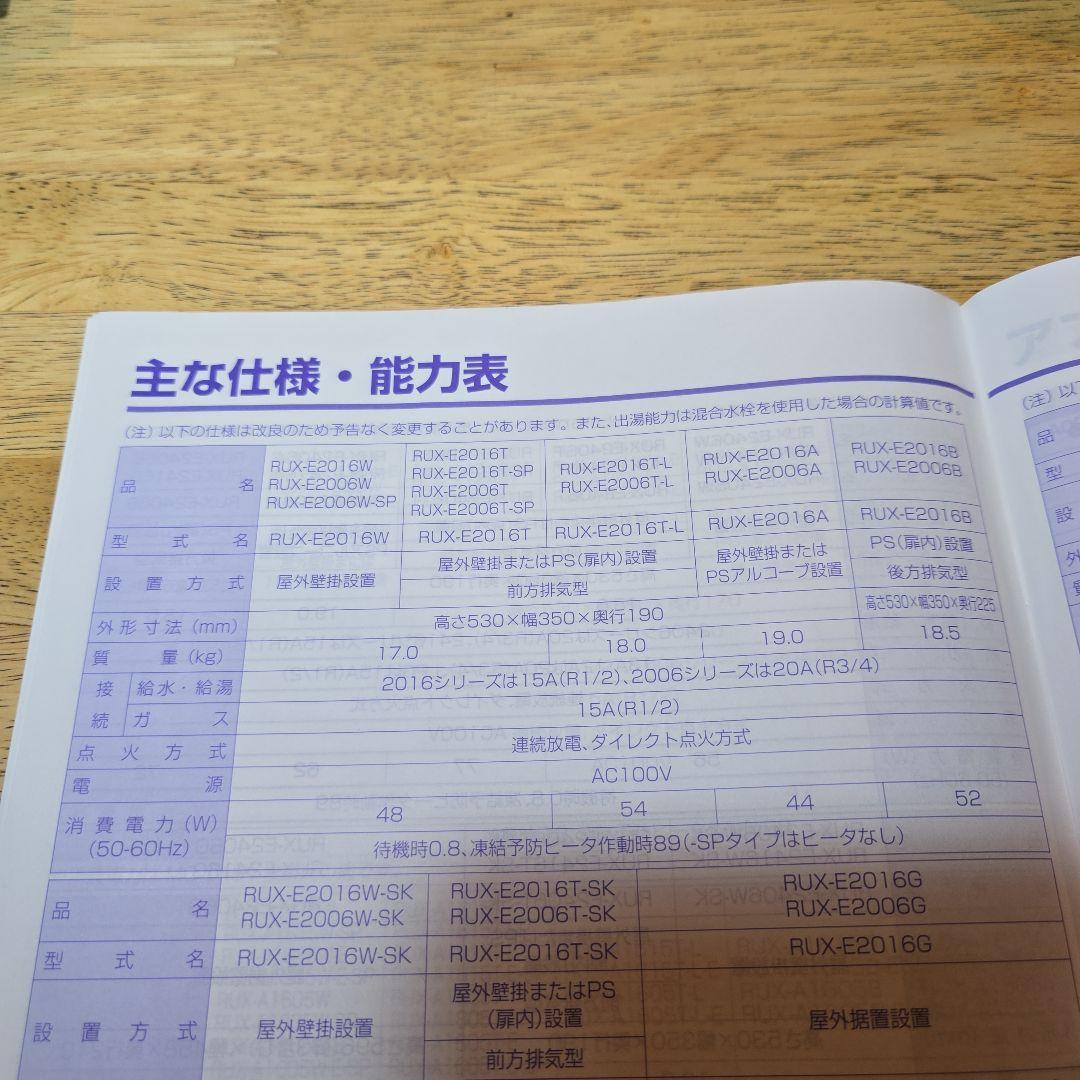 主な仕様・能力表
(注)以下の仕様は改良のため予告なく変更することがあります。また、出湯能力は混合水栓を使用した場合の計算値です。
品名
RUX-E2016W
RUX-E2006W
RUX-E2006W-SP
RUX-E2016T
RUX-E2016T-SP
RUX-E2006T
RUX-E2006T-SP
RUX-E2016T-L
RUX-E2006T-L
RUX-E2016A
RUX-E2006A
RUX-E2016B
RUX-E2006B
型式名
RUX-E2016W
RUX-E2016T
RUX-E2016T-L
RUX-E2016A
RUX-E2016B
設置方式
屋外壁掛設置
屋外壁掛またはPS(扉内)設置
前方排気型
屋外壁掛または
PSアルコーブ設置
PS(扉内)設置
後方排気型
外形寸法(mm)
高さ530×幅350×奥行190
高さ530×幅350×奥行225
質量(kg)
17.0
18.0
19.0
18.5
接続
給水・給湯
2016シリーズは15A(R1/2)、2006シリーズは20A(R3/4)
ガス
15A(R1/2)
点火方式
連続放電、ダイレクト点火方式
電源
AC100V
消費電力(W)
(50-60Hz)
48
54
44
52
待機時0.8、凍結予防ヒータ作動時89(-SPタイプはヒータなし)
品名
RUX-E2016W-SK
RUX-E2006W-SK
RUX-E2016T-SK
RUX-E2006T-SK
RUX-E2016G
RUX-E2006G
型式名
RUX-E2016W-SK
RUX-E2016T-SK
RUX-E2016G
設置方式
屋外壁掛設置
屋外壁掛またはPS
(扉内)設置
前方排気型
屋外据置設置
(注)以
品
型
設
外